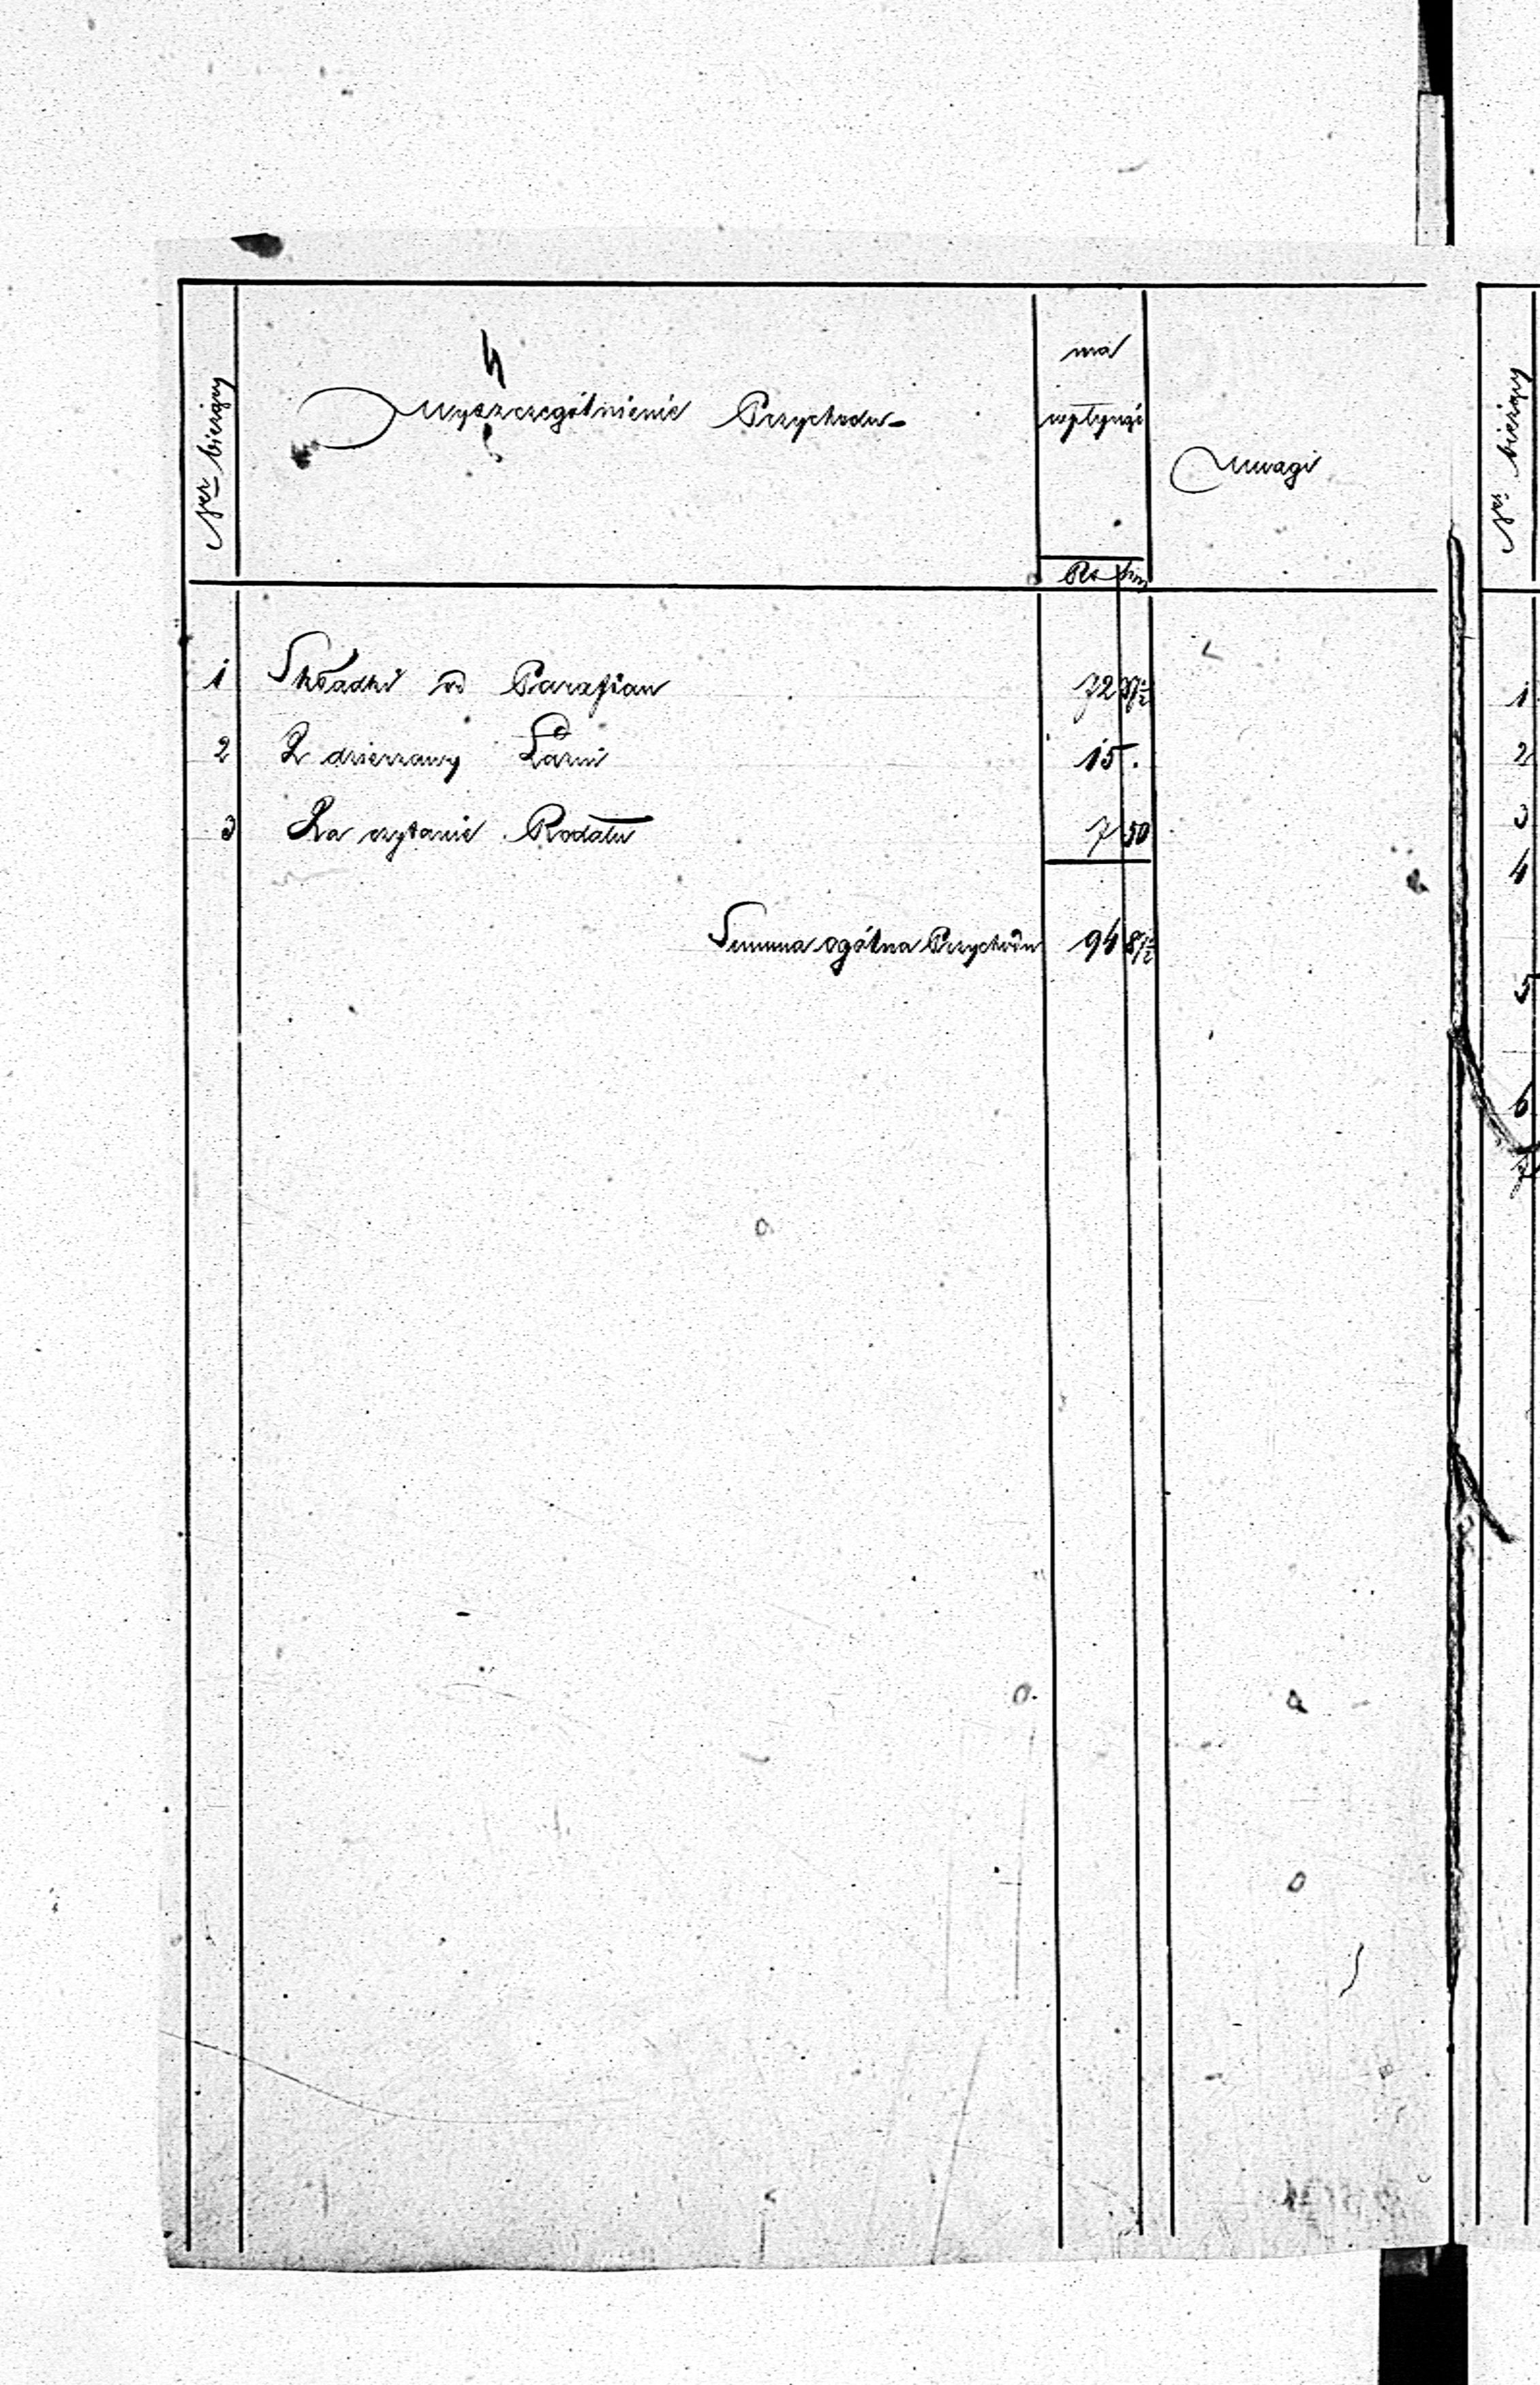 Ner bieżący
Wyszczególnienie Przychodu
ma
wpłynąć
Uwagi
Rs
1 Składki od Parafian 72 37½
2 Z dzierzawy Łazni 15 .
3 Za czytanie Rodału 7 50
Summa ogólna Przychodu 94 87½
Nr bieżący
1
2
3
4
5
6
7